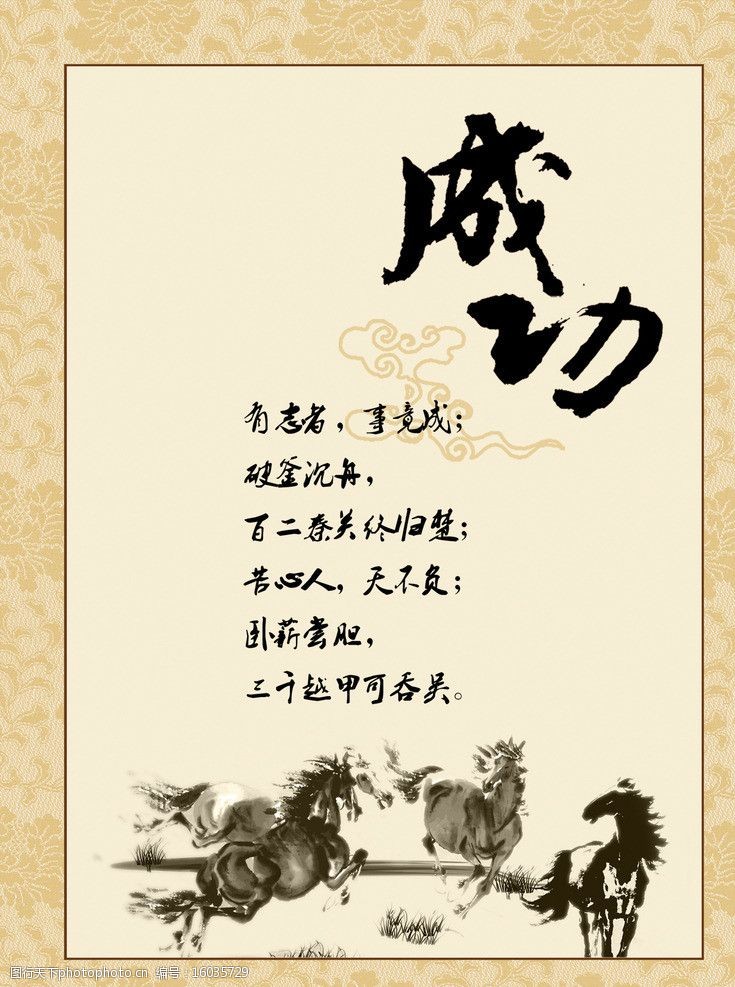 成功
有志者，事竟成；
破釜沉舟，
百二秦关终归楚；
苦心人，天不负；
卧薪尝胆，
三千越甲可吞吴。
图行天下photophoto.cn 编号：16035729